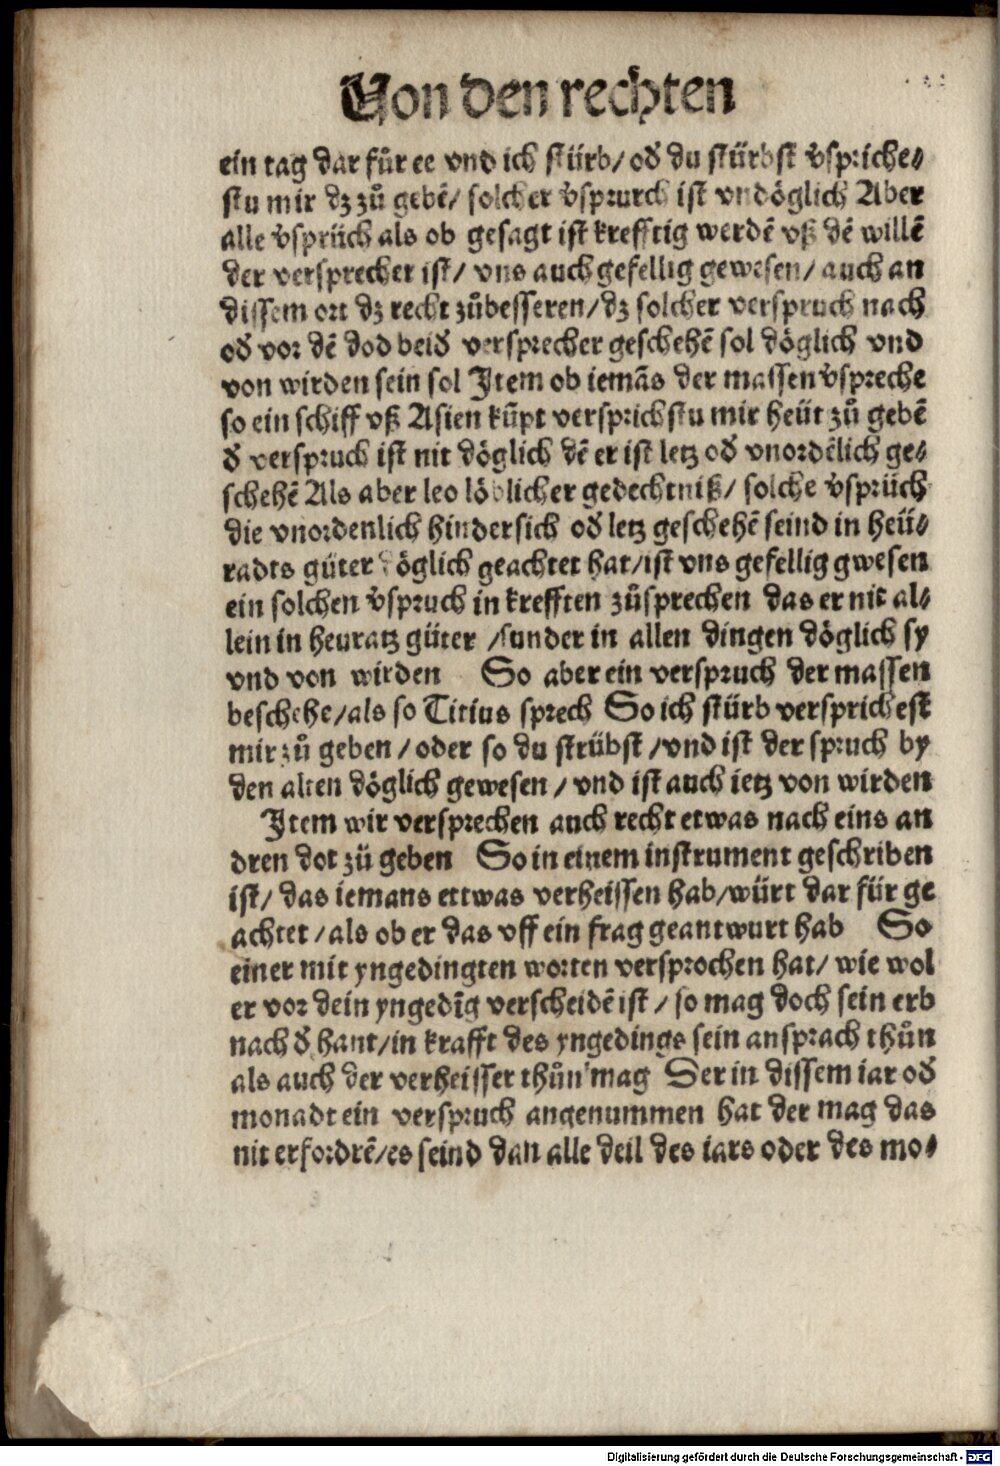 Von den rechten
ein tag dar für ee vnd ich stürb/ od̕ du stürbst v̕spriche⸗
stu mir dz zů gebē/ solcher v̕sprurch ist vndöglich Aber
alle v̕sprüch als ob gesagt ist krefftig werdē vß dē willē
der versprecher ist/ vns auch gefellig gewesen/ auch an
dissem ort dz recht zůbesseren/ dz solcher verspruch nach
od̕ vor dē dod beid̕ versprecher geschehē sol döglich vnd
von wirden sein sol Item ob iemās der massen v̕spreche
so ein schiff vß Asien kūpt versprichstu mir heüt zů gebē
d̕ verspruch ist nit döglich dē er ist letz od̕ vnordēlich ge⸗
schehē Als aber leo löblicher gedechtniß/ solche v̕sprüch
die vnordenlich hindersich od̕ letz geschehē seind in heü⸗
radts güter döglich geachtet hat/ist vns gefellig gwesen
ein solchen v̕spruch in krefften zůsprechen das er nit al⸗
lein in heuratz güter /sunder in allen dingen döglich sy
vnd von wirden So aber ein verspruch der massen
beschehe/als so Titius sprech So ich stürb versprichest
mir zů geben / oder so du strübst /vnd ist der spruch by
den alten döglich gewesen / vnd ist auch ietz von wirden
Item wir versprechen auch recht etwas nach eins an
dren dot zů geben So in einem instrument geschriben
ist/ das iemans ettwas verheissen hab/würt dar für ge
achtet /als ob er das vff ein frag geantwurt hab So
einer mit yngedingten worten versprochen hat/ wie wol
er vor dein yngedīg verscheidē ist / so mag doch sein erb
nach d̕ hant/in krafft des yngedings sein ansprach thůn
als auch der verheisser thůn mag Der in dissem iar od̕
monadt ein verspruch angenummen hat der mag das
nit erfordrē/es seind dan alle deil des iars oder des mo⸗
Digitalisierung gefördert durch die Deutsche Forschungsgemeinschaft - DFG